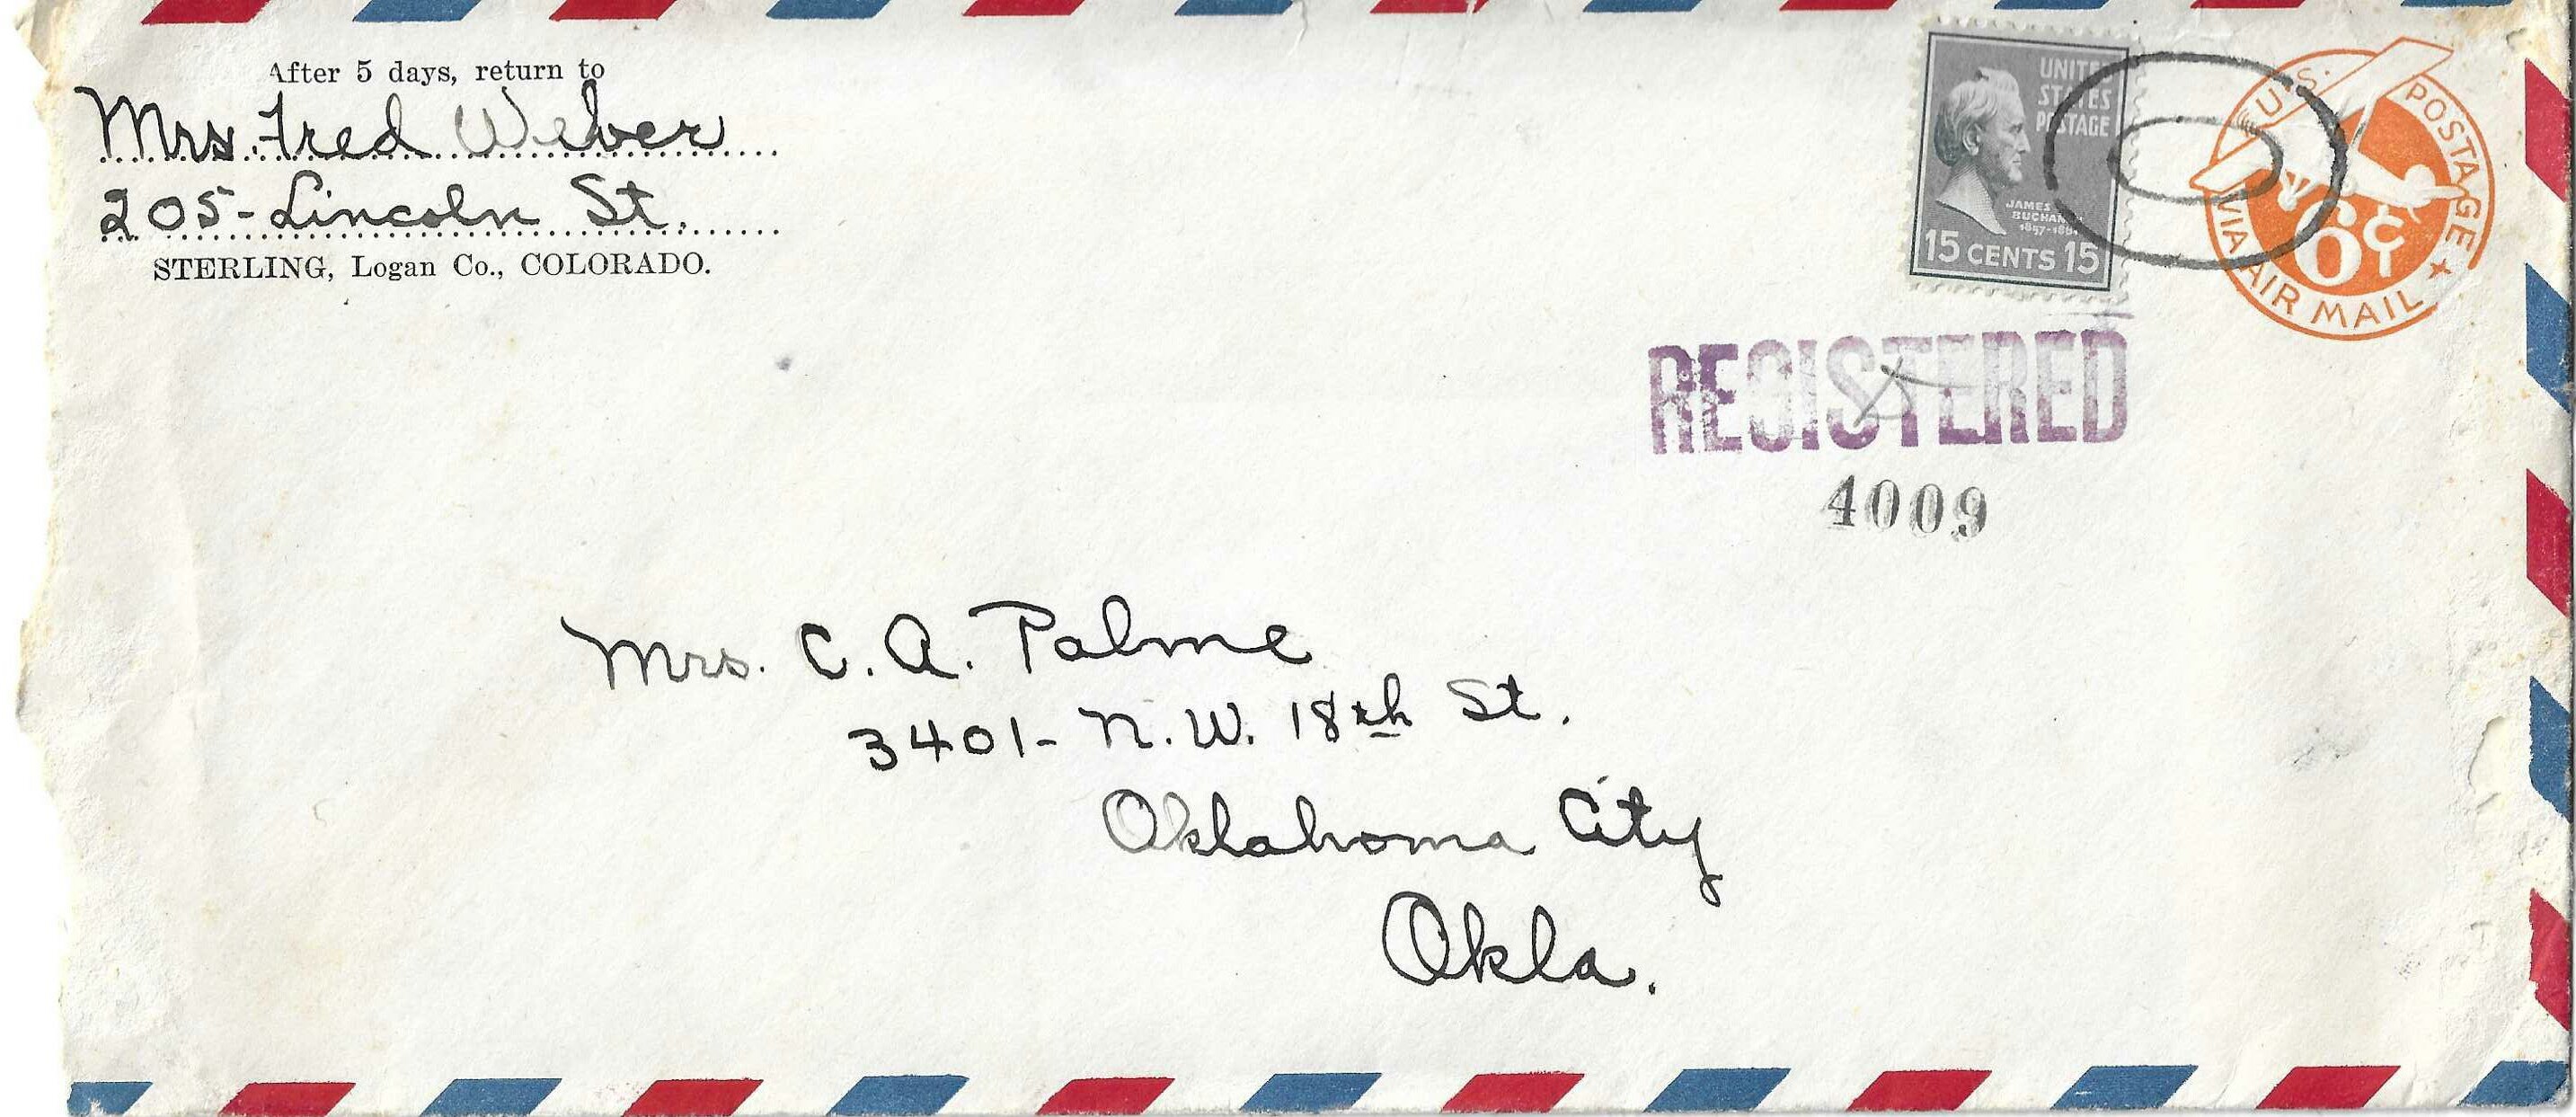 After 5 days, return to
Mrs. Fred Weber
205-Lincoln St.
STERLING, Logan Co., COLORADO.
UNITED
STATES
POSTAGE
JAMES
BUCHANAN
15 CENTS 15
U.S. POSTAGE
6¢
VIA AIR MAIL
REGISTERED
4009
Mrs. C. A. Palme
3401- N.W. 18th St.
Oklahoma City
Okla.